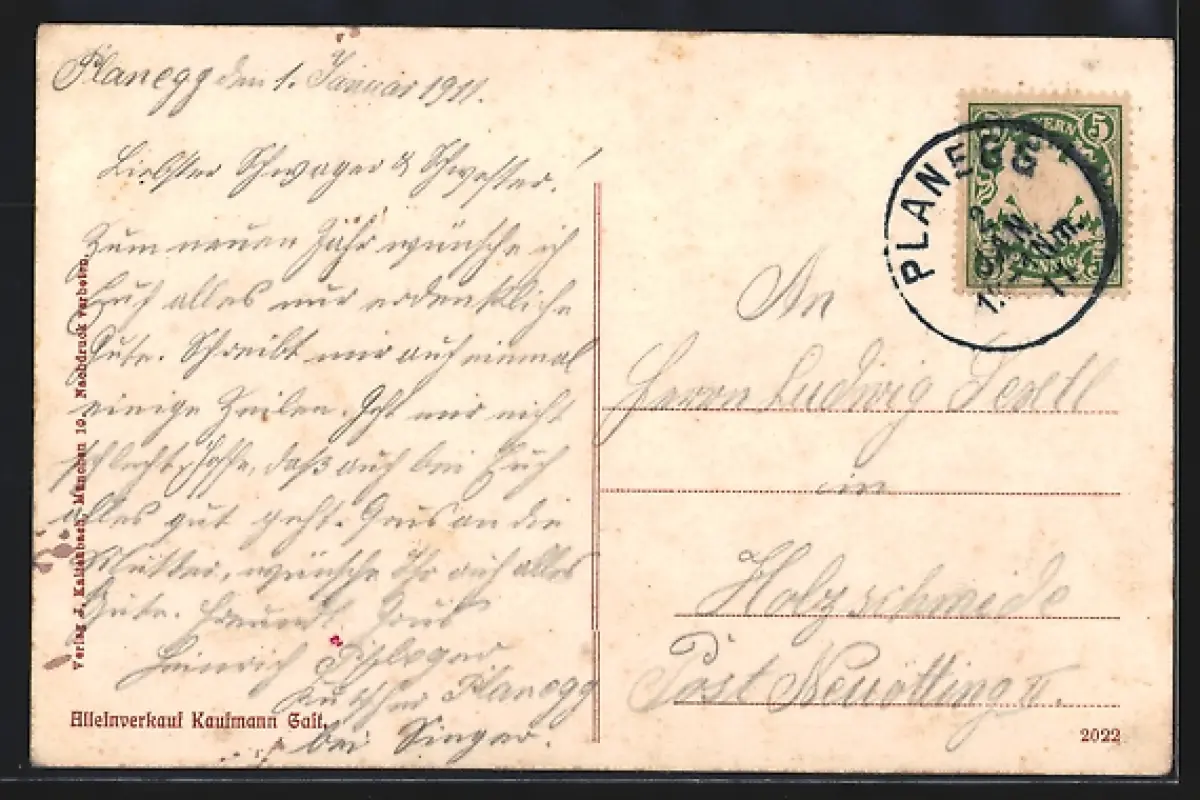 Planegg den 1. Januar 1911.
Liebster Schwager & Schwester!
Zum neuen Jahr wünsche ich
Euch alles nur erdenkliche
Gute. Schreibt mir auch einmal
einige Zeilen. Geht mir nicht
schlecht, hoffe, daß auch bei Euch
alles gut geht. Grus an die
Mutter, wünsche Ihr auch alles
Gute. Freundl. Grus
Heinrich
Kutscher Planegg
bei Singer.
Verlag J. Kaltenbach, München 10. Nachdruck verboten.
Alleinverkauf Kaufmann Gait.
BAYERN
5
PFENNIG
PLANEGG
2
JAN.
Nm.
11
An
Herrn Ludwig
in
Holzschmiede
Post Neuötting II.
2022